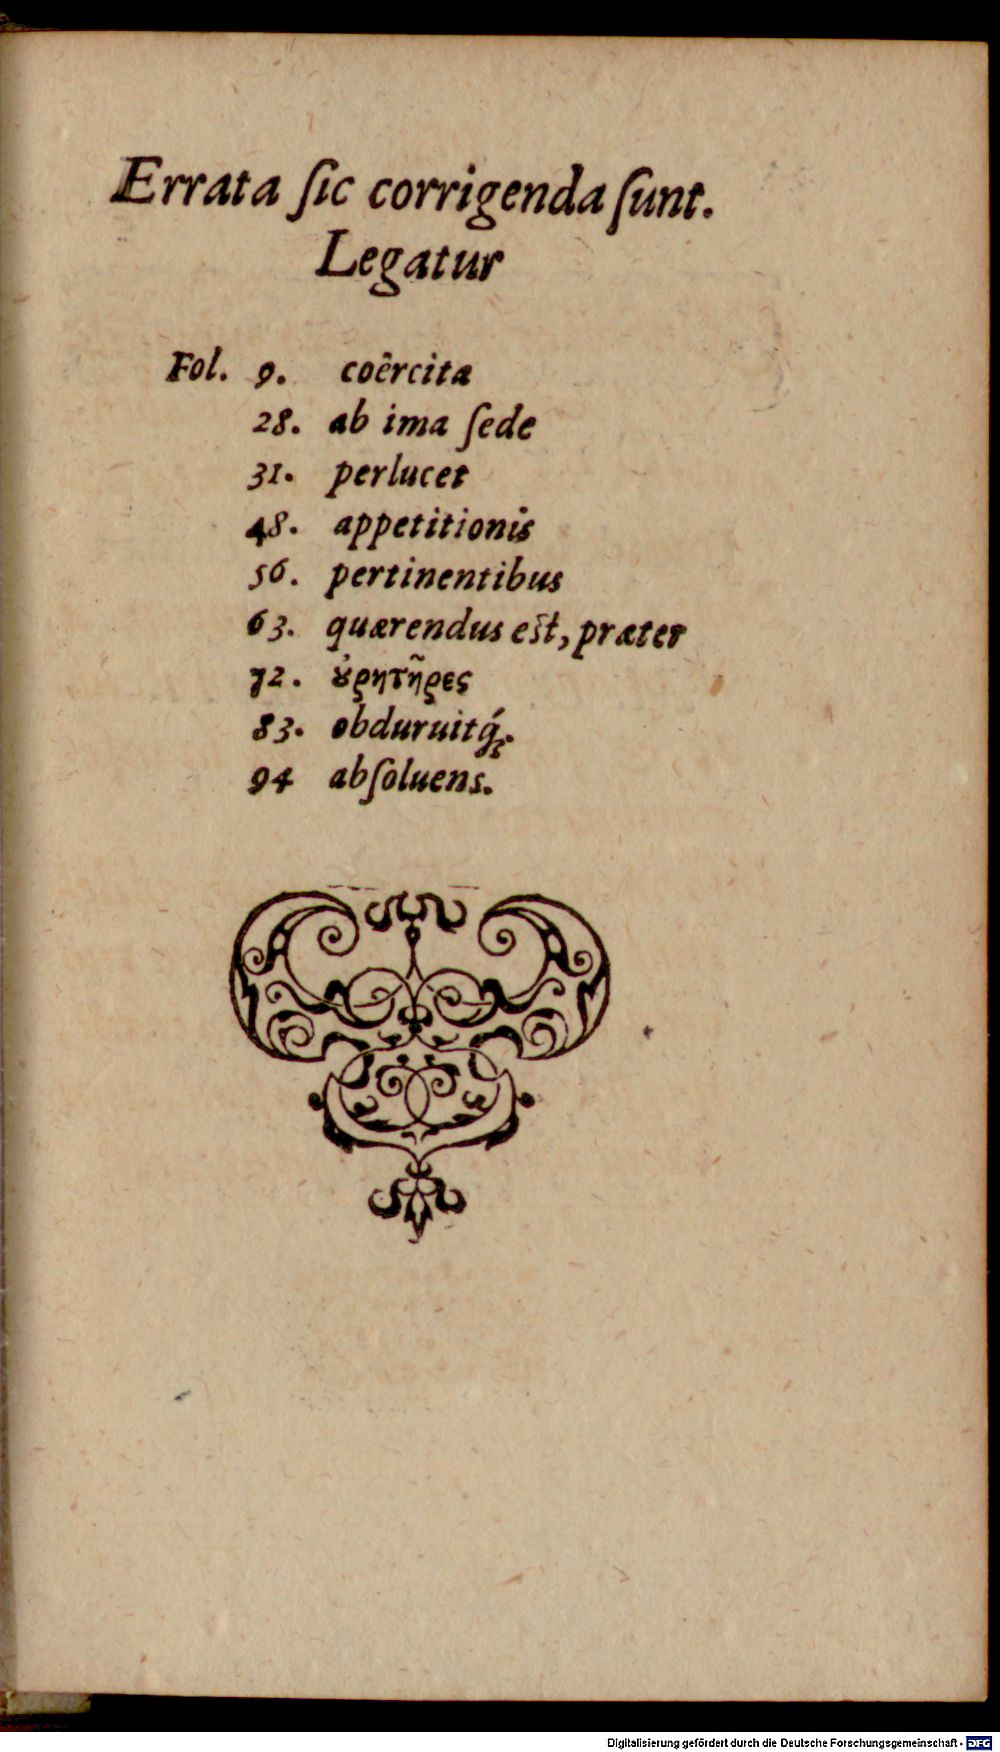 Errata ſic corrigenda ſunt.
Legatur
Fol. 9. coêrcita
28. ab ima ſede
31. perlucet
48. appetitionis
56. pertinentibus
63. quærendus est, præter
72. ȣ̓ρητῆρες
83. obduruitq́;.
94 abſoluens.
Digitalisierung gefördert durch die Deutsche Forschungsgemeinschaft - DFG